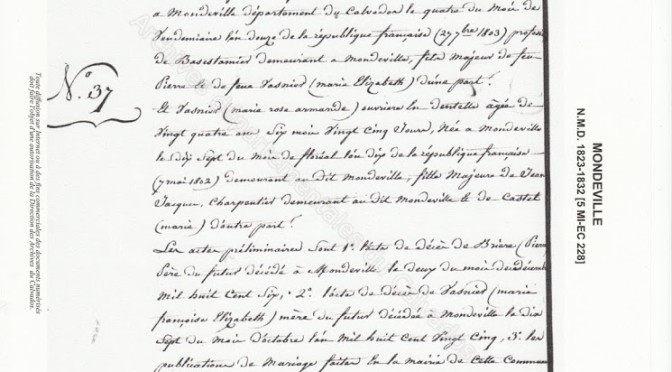 a Mondeville département du Calvados le quatre du Mois de
Vendemiaire l'an douze de la république française (27 7bre 1803) profession
de Basestamier demeurant a Mondeville, fils majeur de feu
Pierre & de feue Vasnier (maria Elizabeth) d'une part.
N.° 37
Et Vasnier (marie rose armande) ouvriere en dentelle âgée de
Vingt quatre ans Six mois Vingt Cinq Jours, Née a Mondeville
le dix Sept du Mois de floréal l'an dix de la république française
(7 mai 1802) demeurant au dit Mondeville, fille Majeure de Jean
Jacques, Charpentier demeurant au dit Mondeville & de Castel
(marie) d'autre part.
Les actes préliminaires Sont 1.° l'acte de décès de (Pierre
père du futur décédé a Mondeville le deux du mois de décembre
Mil huit Cent Six, 2.° l'acte de décès de Vasnier (marie
françoise Elizabeth) mère du futur décédée a Mondeville le dix
Sept du mois d'octobre l'an Mil huit Cent Vingt Cinq, 3.° les
publications de Mariage faites En la mairie de Cette Commune
Toute diffusion sur Internet ou à des fins commerciales des documents numérisés
doit faire l'objet d'une autorisation de la Direction des Archives du Calvados.
MONDEVILLE
N.M.D. 1823-1832 [5 MI-EC 228]